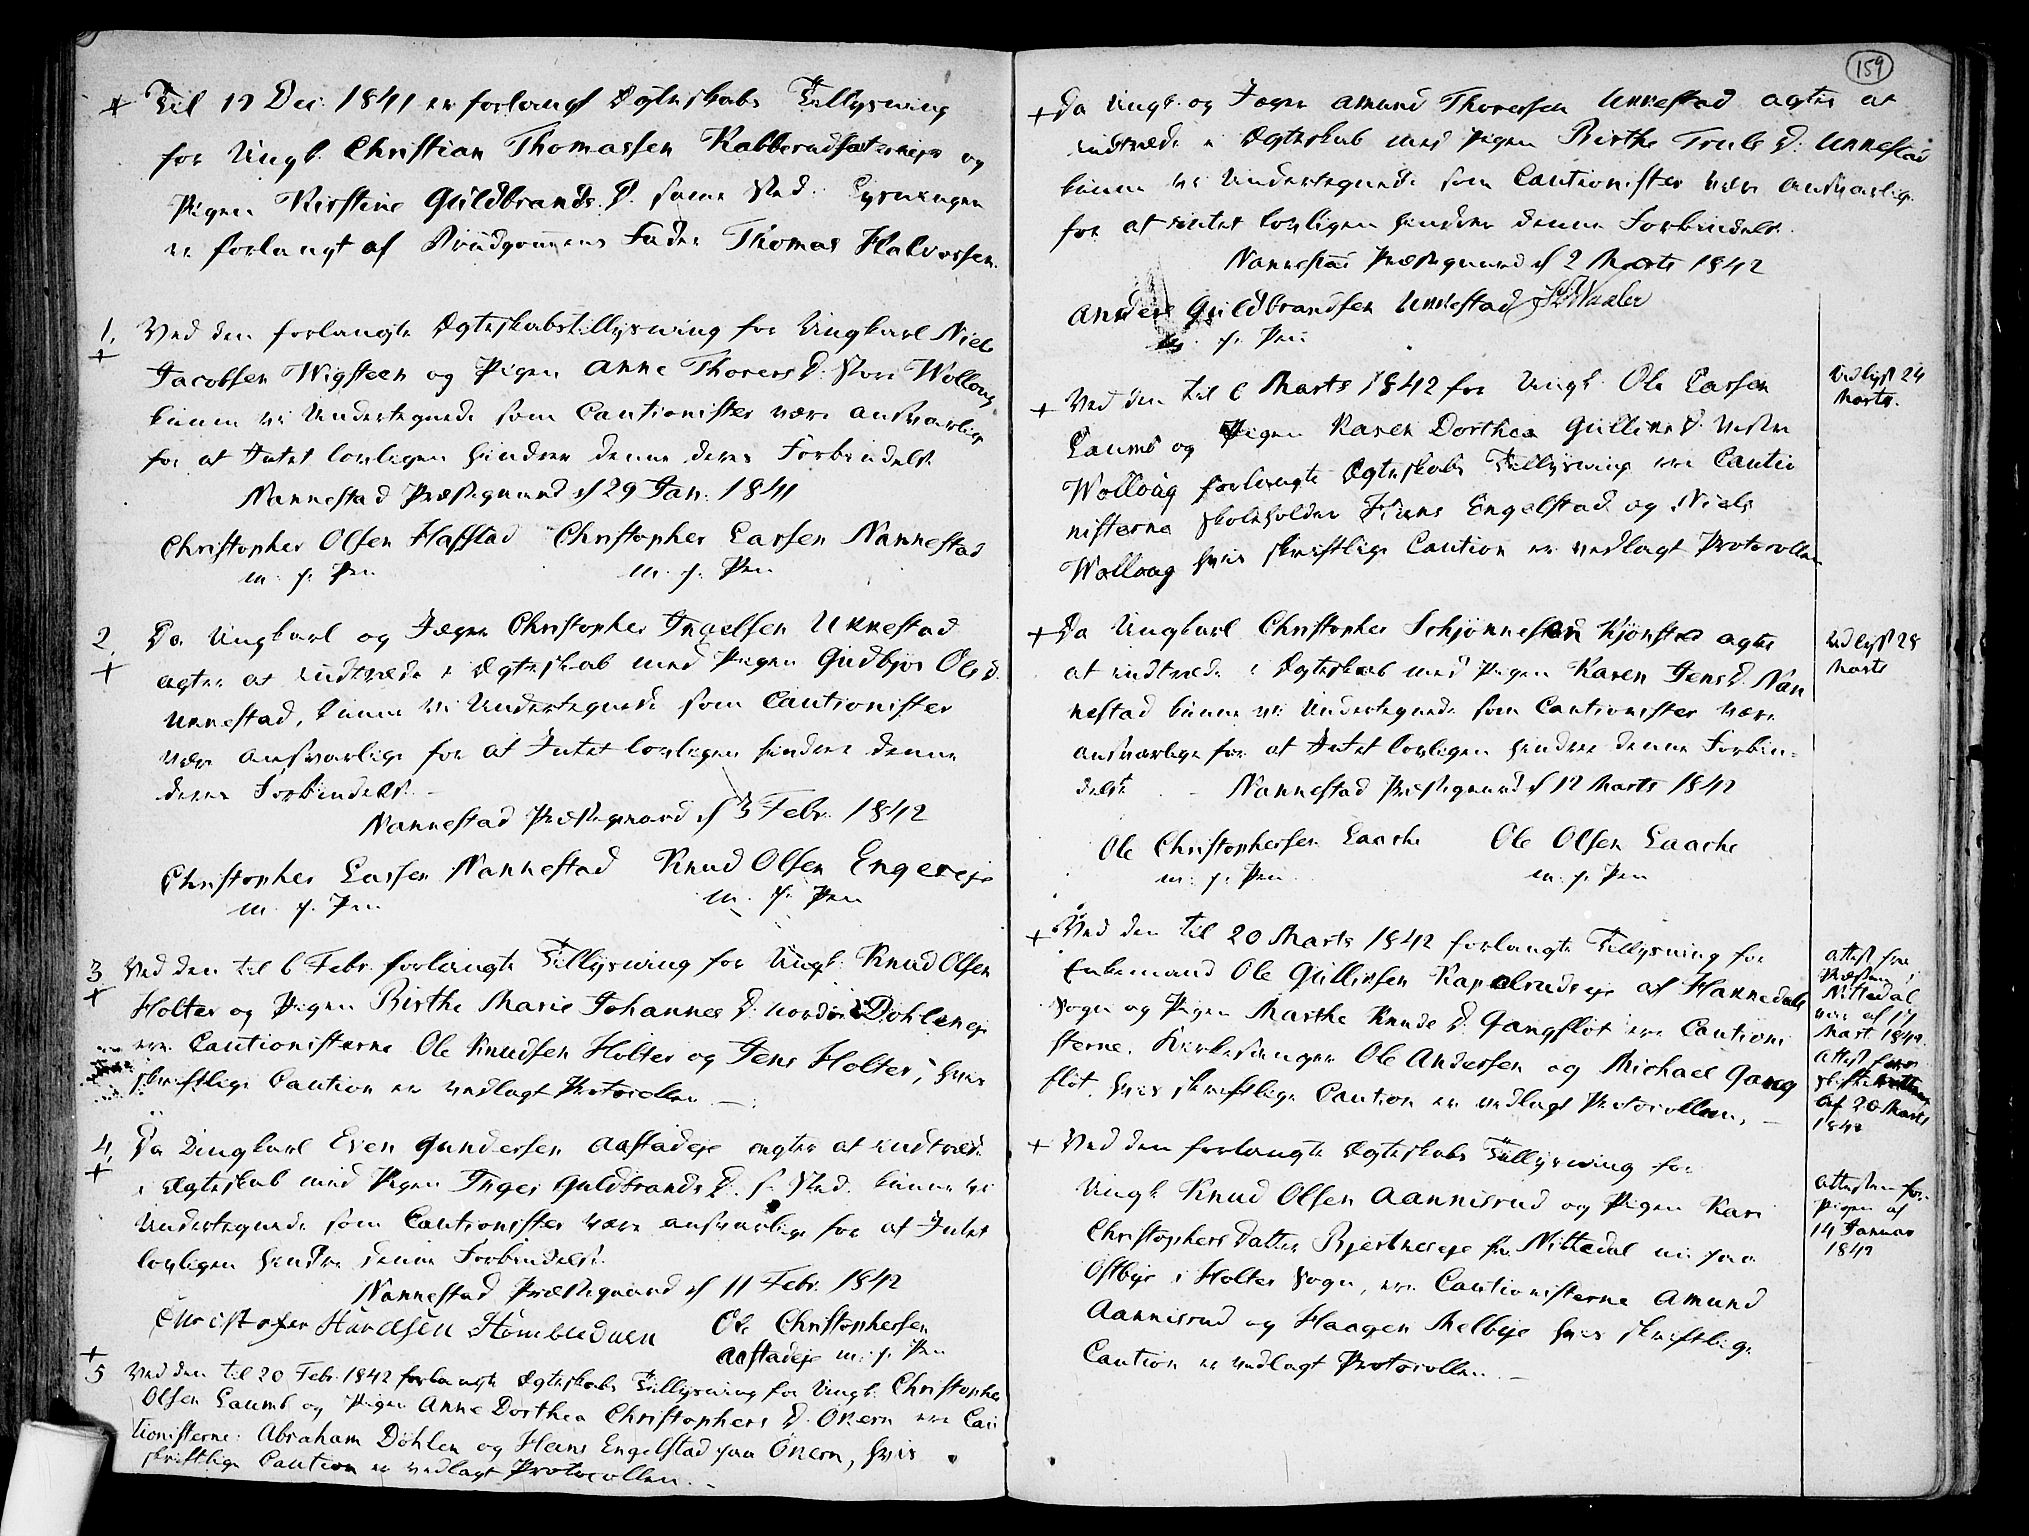 + Til 12 Dec. 1841 er forlangt Ægteskabs Tillysning
for Ungk. Christian Thomassen Rabberudsætereje og
Pigen Kirstine Guldbrands D. samme Sted. Lysningen
er forlangt af Brudgommens Fader Thomas Halvorsen.
1. + Ved den forlangte Ægteskabstillysning for Ungkarl Niels
Jacobsen Wigsteen og Pigen Anne Thorers D. Store Wollaug
kunne vi Undertegnede som Cautionister være ansvarlige
for at Intet lovligen hindrer denne deres Forbindelse
Nannestad Præstegaard d 29 Jan. 1841
Christopher Olsen Haffstad Christopher Larsen Nannestad
m. p. Pen m. p. Pen
2. + Da Ungkarl og Jæger Christopher Engelsen Unnestad
agter at indtræde i Ægteskab med Pigen Gudbjør Ols D.
Unnestad, kunne vi Undertegnede som Cautionister
være ansvarlige for at Intet lovligen hindrer denne
deres Forbindelse. –
Nannestad Præstegaard d 3 Febr. 1842
Christopher Larsen Nannestad Knud Olsen Engereje
m. p. Pen m. p. Pen
3 + Ved den til 6 Febr. forlangte Tillysning for Ungk. Knud Olsen
Holter og Pigen Birthe Marie Johannes D. nordre Døhleneje
ere Cautionisterne Ole Knudsen Holter og Jens Holter, hvis
skriftlige Caution er vedlagt Protocollen. –
4. + Da Ungkarl Even Gundersen Aastadeje agter at indtræde
i Ægteskab med Pigen Inger Guldbrands D. s. Sted. kunne vi
Undertegnede som Cautionister være ansvarlige for at Intet
lovligen hindrer denne Forbindelse.
Nannestad Præstegaard d 11 Febr. 1842
Christofer Ole Christophersen
Aastadeje m. p. Pen
+ 5 Ved den til 20 Febr. 1842 forlangte Ægteskabs Tillysning for Ungk. Christopher
Olsen Laumb og Pigen Anne Dorthea Christophers D. Økern ere Cau
tionisterne: Abraham Døhlen og Hans Engelstad paa Økern, hvis
skriftlige Caution er vedlagt Protocollen. –
159
+ Da Ungk. og Jæger Amund Thoresen Unnestad agter at
indtræde i Ægteskab med Pigen Birthe Truls D. Unnestad
kunne vi Undertegnede som Cautionister være ansvarlige
for at intet lovligen hindrer denne Forbindelse.
Nannestad Præstegaard d 2 Marts 1842
Anders Guldbrandsen Unnestad
m. p. Pen
+ Ved den til 6 Marts 1842 for Ungk. Ole Larsen
Laumb og Pigen Karen Dorthea Gulliks D. Vestre
Wollaug forlangte Ægteskabs Tillysning ere Cautio
nisterne Skoleholder Hans Engelstad og Niels
Wollaug hvis skriftlige Caution er vedlagt Protocollen
Udlyst 24
Marts.
+ Da Ungkarl Christopher Schjønnesen Kjønstad agter
at indtræde i Ægteskab med Pigen Karen Jens D. Nan
nestad kunne vi Undertegnede som Cautionister være
ansvarlige for at Intet lovligen hindrer denne Forbin-
delse – Nannestad Præstegaard d 12 Marts 1842
Udlyst 28
Marts
Ole Christophersen Laache Ole Olsen Laache
m. p. Pen m. p. Pen
+ Ved den til 20 Marts 1842 forlangte Tillysning for
Enkemand Ole Gulliksen Kapelrudeje af Hannedals
Sogn og Pigen Marthe Knuds D. Gangfløt ere Cautioni
sterne. Kirkesanger Ole Andersen og Michael Gang
fløt, hvis skriftlige Caution er vedlagt Protocollen, –
Attest fra
Præsten i
Nittedal
af 17
Mart. 1842.
Attest fra
af 20 Marts
1842
+ Ved den forlangte Ægteskabs Tillysning for
Ungk Knud Olsen Aannisrud og Pigen Kari
Christophers Datter Bjertneseje fra Nittedal nu paa
Østbye i Holter Sogn, ere Cautionisterne Amund
Aannisrud og Haagen Melbye hvis skriftlige
Caution er vedlagt Protocollen. –
Attesten for
Pigen af
14 Januar
1842